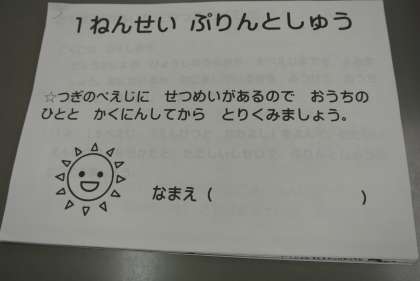 1ねんせい ぷりんとしゅう
☆つぎのぺえじに せつめいがあるので おうちの
ひとと かくにんしてから とりくみましょう。
なまえ( )